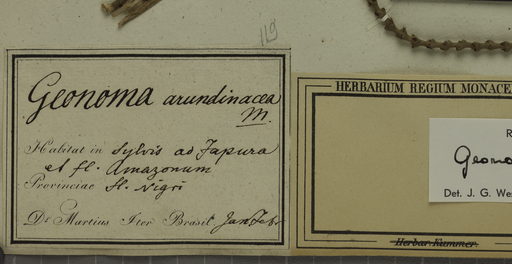 119
Geonoma arundinacea
M.
Habitat in sylvis ad Japura
et fl. Amazonum
Provinciae fl. Nigri
Dr Martius Iter Brasil. Jan Febr
HERBARIUM REGIUM MONACE
R
Geono
Det. J. G. We
Herbar. Kummer.